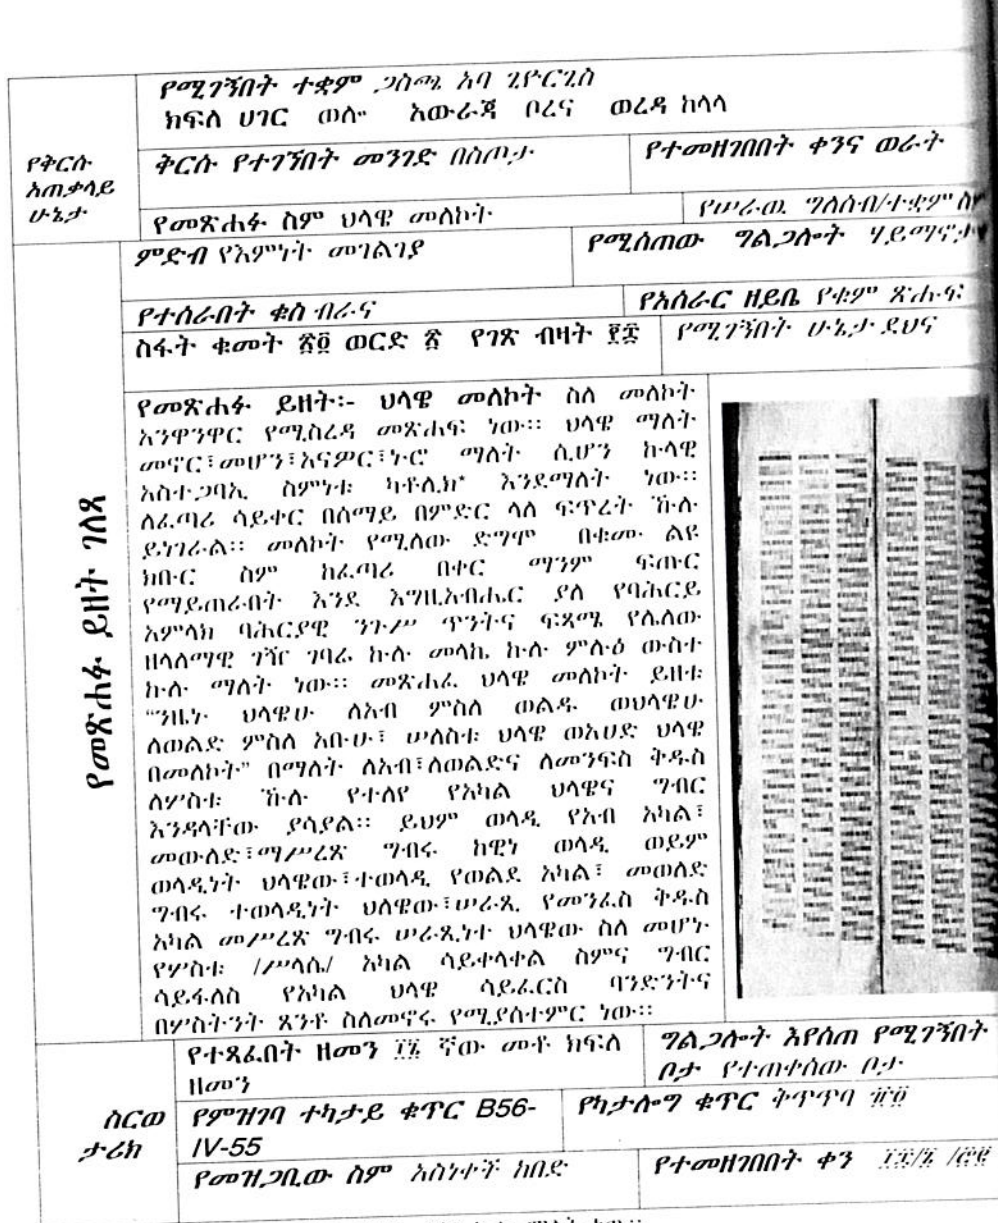 የሚገኝበት ተቋም ጋስጫ አባ ጊዮርጊስ
ክፍለ ሀገር ወሎ አውራጃ ቦረና ወረዳ ከላላ
የቅርሱ
አጠቃላይ
ሁኔታ
ቅርሱ የተገኘበት መንገድ በስጦታ
የተመዘገበበት ቀንና ወራት
የመጽሐፉ ስም ህላዌ መለኮት
የሠራዉ ግለሰብ/ተቋም
ምድብ የእምነት መገልገያ
የሚሰጠው ግልጋሎት
የተሰራበት ቁስ ብራና
የአሰራር ዘይቤ የቁም ጽሑፍ
ስፋት ቁመት ወርድ የገጽ ብዛት
የሚገኝበት ሁኔታ ደህና
የመጽሐፉ ይዘት ገለጻ
የመጽሐፉ ይዘት፡- ህላዌ መለኮት ስለ መለኮት
አኗኗር የሚያስረዳ መጽሐፍ ነው። ህላዌ ማለት
መኖር፣መሆን፣አናዎር፣ኑሮ ማለት ሲሆን ኩላዊ
አስተጋባኢ ስምነቱ ካቶሊክ" እንደማለት ነው።
ለፈጣሪ ሳይቀር በሰማይ በምድር ላለ ፍጥረት ኹሉ
ይነገራል። መለኮት የሚለው ድግሞ በቁሙ ልዩ
ክቡር ስም ከፈጣሪ በቀር ማንም ፍጡር
የማይጠራበት እንደ እግዚአብሔር ያለ የባሕርይ
አምላክ ባሕርያዊ ንጉሥ ጥንትና ፍጻሜ የሌለው
ዘላለማዊ ገዥ ገባሬ ኩሉ መላኬ ኩሉ ምሉዕ ውስተ
ኩሉ ማለት ነው። መጽሐፈ ህላዌ መለኮት ይዘቱ
“ንዜኑ ህላዌሁ ለአብ ምስለ ወልዱ ወህላዌሁ
ለወልድ ምስለ አቡሁ፣ ሠለስቱ ህላዌ ወአሀድ ህላዌ
በመለኮት” በማለት ለአብ፣ለወልድና ለመንፍስ ቅዱስ
ለሦስቱ ኹሉ የተለየ የአካል ህላዌና ግብር
እንዳላቸው ያሳያል። ይህም ወላዲ የአብ አካል፣
መውለድ፣ማሥረጽ ግብሩ ከዊነ ወላዲ ወይም
ወላዲነት ህላዌው፣ተወላዲ የወልደ አካል፣ መወለድ
ግብሩ ተወላዲነት ህለዌው፣ሠራጺ የመንፈስ ቅዱስ
አካል መሥረጽ ግብሩ ሠራጺነተ ህላዌው ስለ መሆኑ
የሦስቱ /ሥላሴ/ አካል ሳይቀላቀል ስምና ግብር
ሳይፋለስ የአካል ህላዌ ሳይፈርስ ባንድንትና
በሦስትንት ጸንቶ ስለመኖሩ የሚያስተምር ነው።
ስርወ
ታሪክ
የተጻፈበት ዘመን ኛው መቶ ክፍለ
ዘመን
ግልጋሎት እየሰጠ የሚገኝበት
ቦታ የተጠቀሰው ቦታ
የምዝገባ ተካታይ ቁጥር B56-
IV-55
የካታሎግ ቁጥር ቅጥጥባ
የመዝጋቢው ስም አስነቀች ከበድ
የተመዘገበበት ቀን